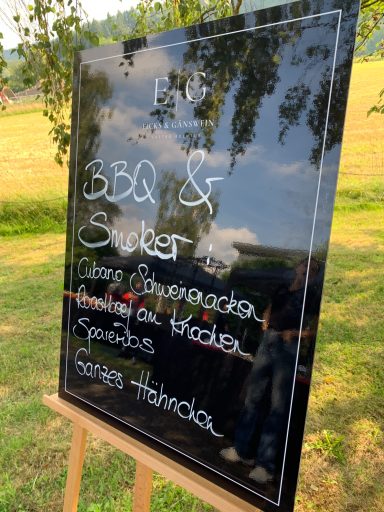 E|G
EICKS & GÄNSWEIN
BBQ &
Smoker:
Cubano Schweinenacken
Roastbeef am Knochen
Spareribs
Ganzes Hähnchen